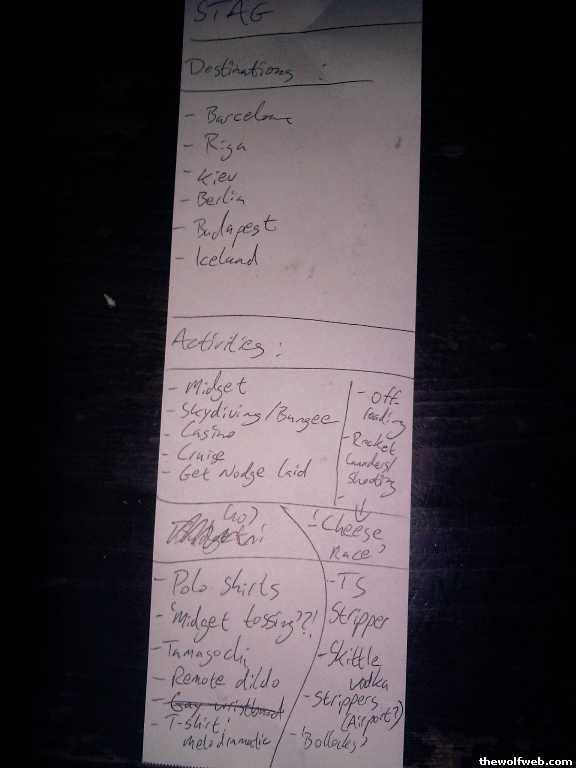 STAG
Destinations :
- Barcelona
- Riga
- Kiev
- Berlin
- Budapest
- Iceland
Activities :
- Midget
- Skydiving/Bungee
- Casino
- Cruise
- Get Nodge laid
- Off-
roading
- Rocket
launchers/
shooting
-
! Cheese
Race?
- Polo shirts
- 'Midget tossing'??!
- Tamagochi
- Remote dildo
- Gay wristband
- T-shirt:
melodramatic
- TS
Stripper
- Skittle
vodka
- Strippers
(Airport?)
- 'Bollocks'
thewolfweb.com